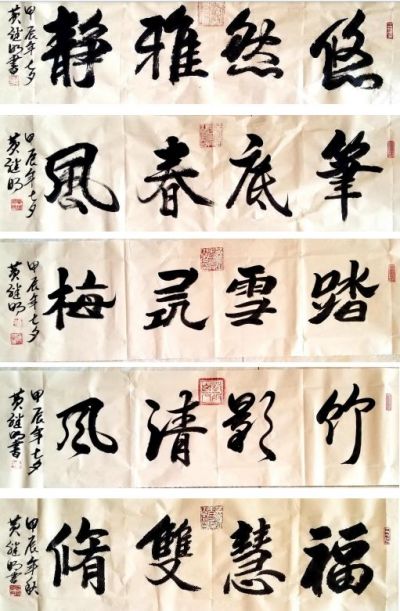 悠然雅静
甲辰年七夕
黄继明书
筆底春風
甲辰年七夕
黄继明
踏雪寻梅
甲辰年七夕
黄继明
竹影清风
甲辰年七夕
黄继明書
福慧雙脩
甲辰年秋
黄继明書